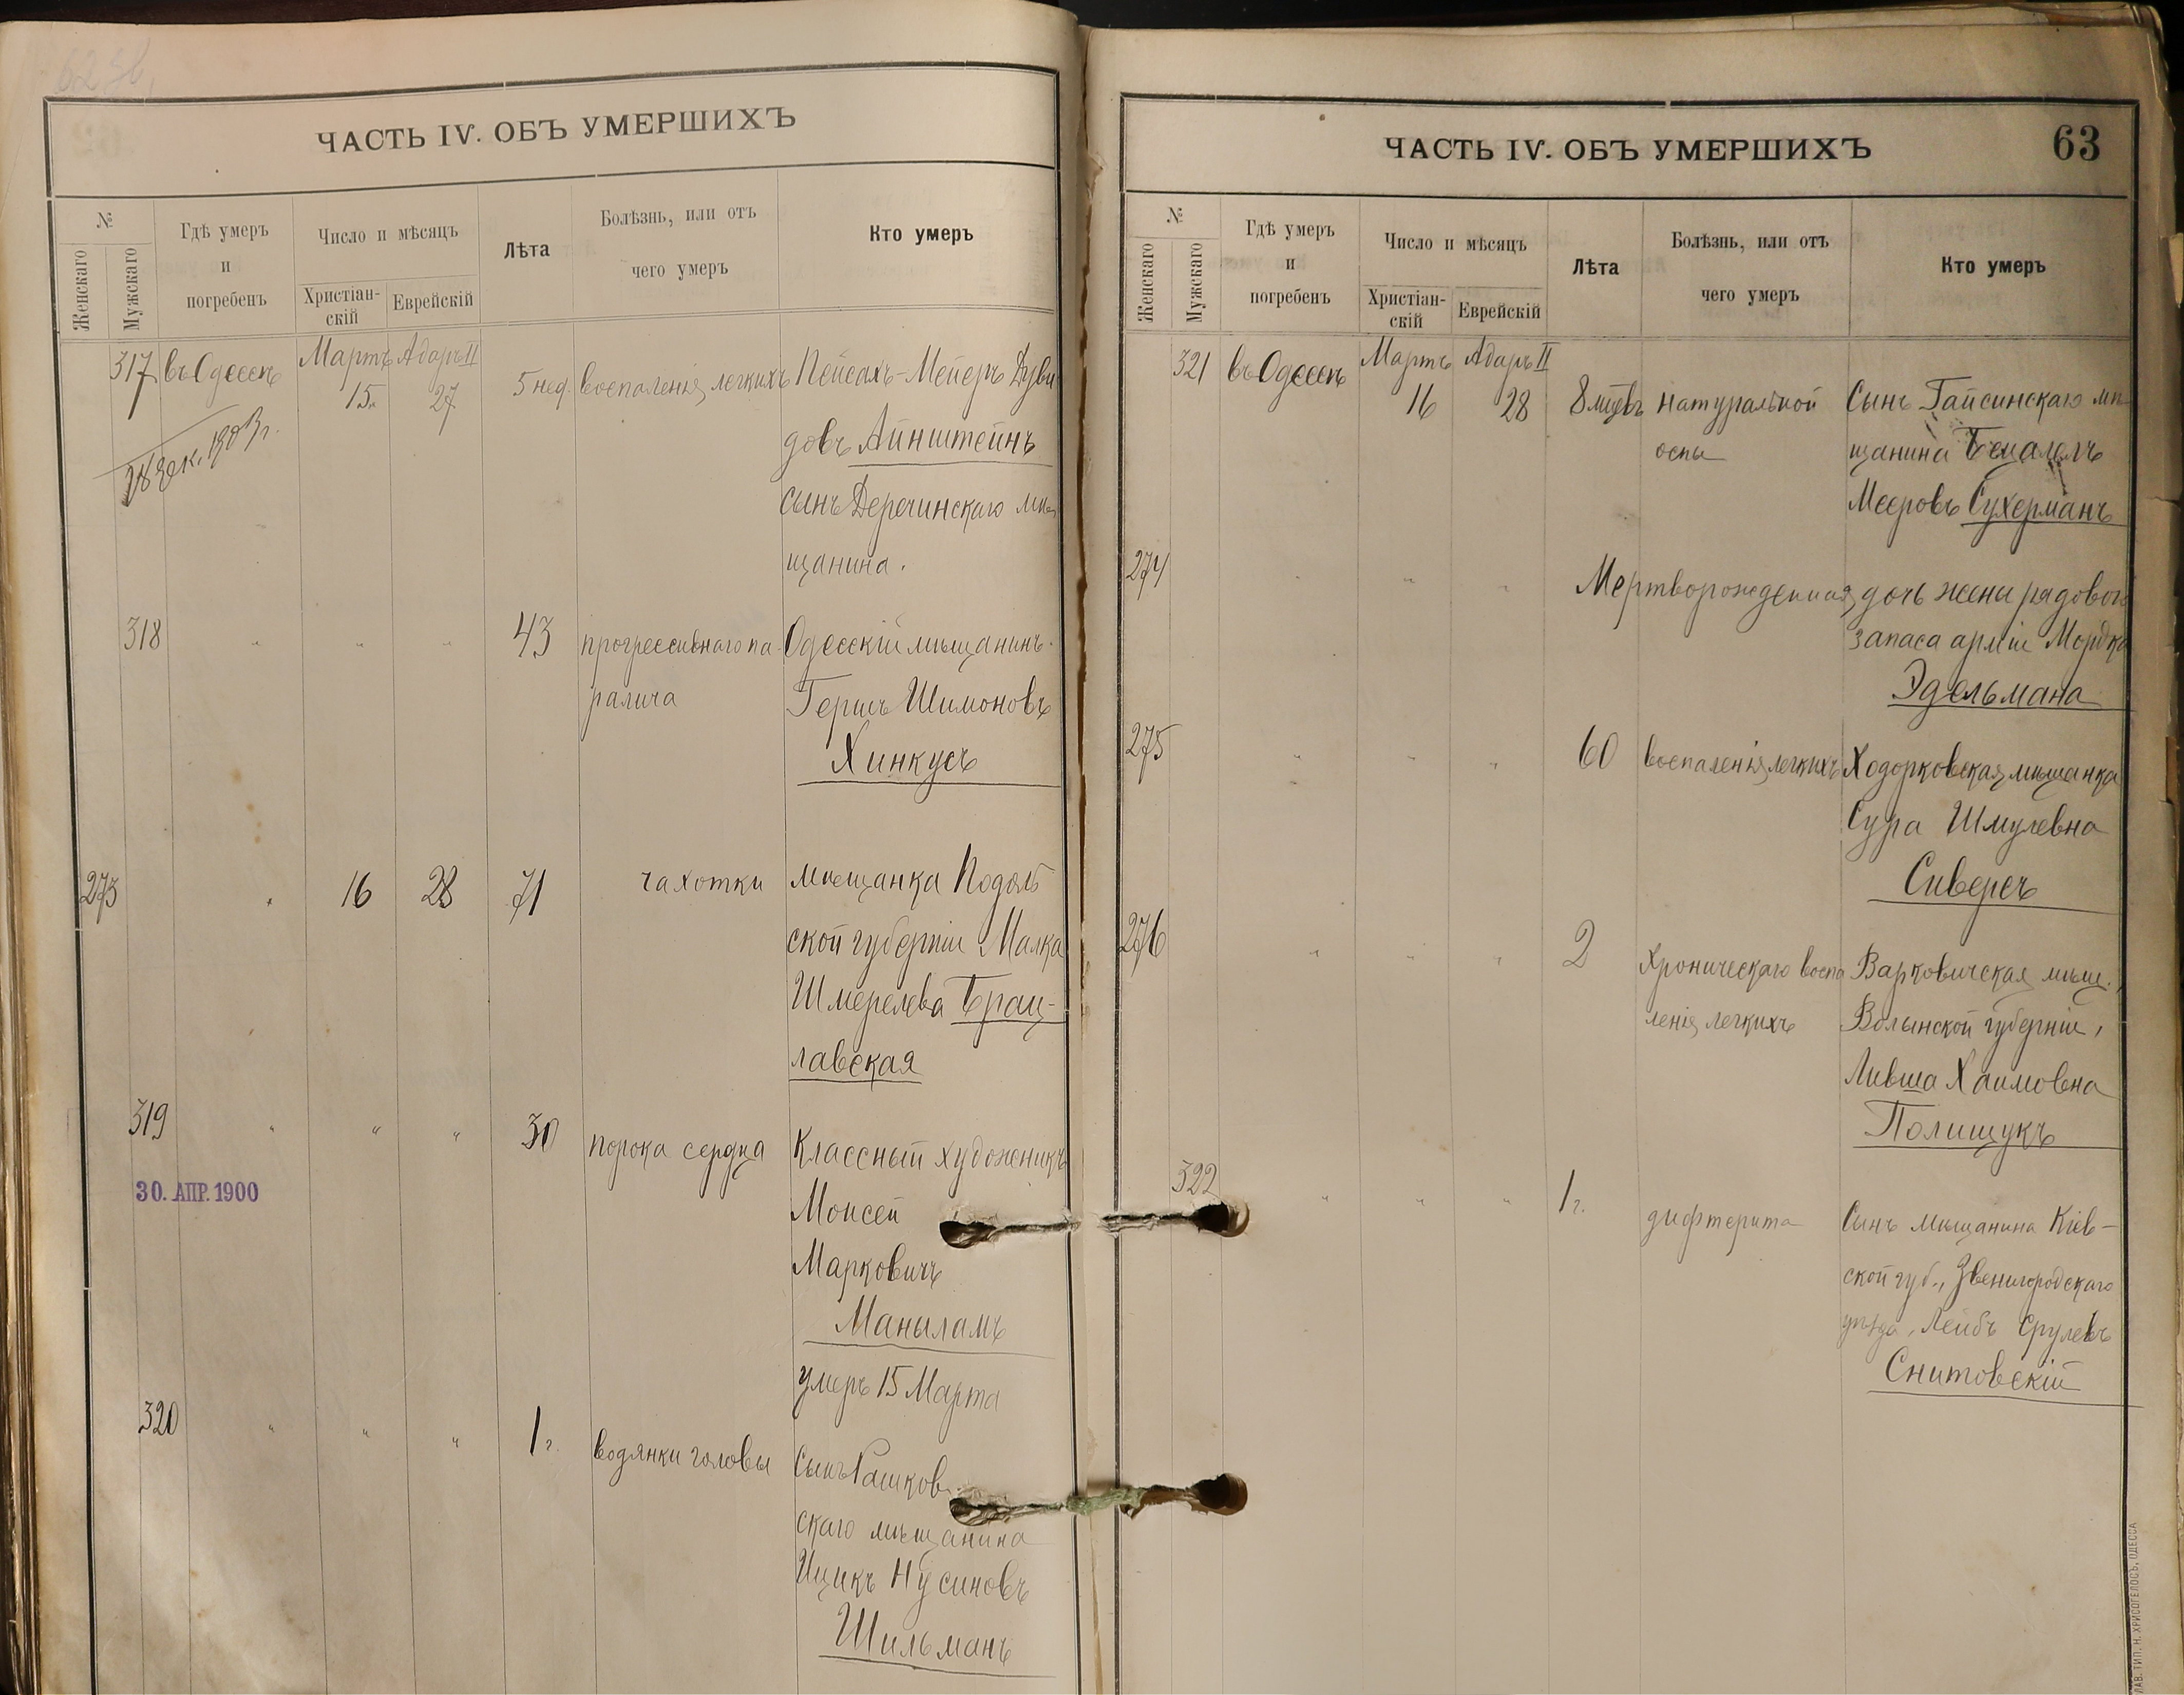 62 об.
ЧАСТЬ IV. ОБЪ УМЕРШИХЪ
№
Женскаго
Мужскаго
Гдѣ умеръ
и
погребенъ
Число и мѣсяцъ
Христіан-
скій
Еврейскій
Лѣта
Болѣзнь, или отъ
чего умеръ
Кто умеръ
317 въ Одессѣ Мартъ 15 Адаръ II 27 5 нед. воспаленія легкихъ Пейсахъ-Мейеръ Дуви-
довъ Айнштейнъ
сынъ Деречинскаго мѣ-
щанина.
18 дек. 1903 г.
318 " " " 43 прогрессивнаго па- Одесскій мѣщанинъ
ралича Гершъ Шимоновъ
Хинкусъ
273 " 16 28 71 чахотки мѣщанка Подоль
ской губерніи Малка
Шмерелева Брац-
лавская
319 " " " 30 порока сердца Классный художникъ
30. АПР. 1900
Моисей
Марковичъ
Маныламъ
умеръ 15 Марта
320 " " " 1 г. водянки головы Сынъ Рашков
скаго мѣщанина
Ицикъ Нусиновъ
Шильманъ
ЧАСТЬ IV. ОБЪ УМЕРШИХЪ
63
№
Женскаго
Мужскаго
Гдѣ умеръ
и
погребенъ
Число и мѣсяцъ
Христіан-
скій
Еврейскій
Лѣта
Болѣзнь, или отъ
чего умеръ
Кто умеръ
321 въ Одессѣ Мартъ 16 Адаръ II 28 8 мцевъ натуральной Сынъ Гайсинскаго мѣ-
оспы щанина Бецалелъ
Мееровъ Сухерманъ
274 " " " Мертворожденная дочь жены рядового
запаса арміи Мордка
Эдельмана
275 " " " 60 воспаленія легкихъ Ходорковская мѣщанка
Сура Шмулевна
Сиверсъ
276 " " " 2 Хроническаго воспа Варковичская мѣщ.,
ленія легкихъ Волынской губерніи,
Ливша Хаимовна
Полищукъ
322 " " " 1 г. дифтерита Сынъ мѣщанина Кіев-
ской губ., Звенигородскаго
уѣзда, Лейбъ Срулевъ
Снитовскій
СЛАВ. ТИП. Н. ХРИСОГЕЛОСЪ, ОДЕССА